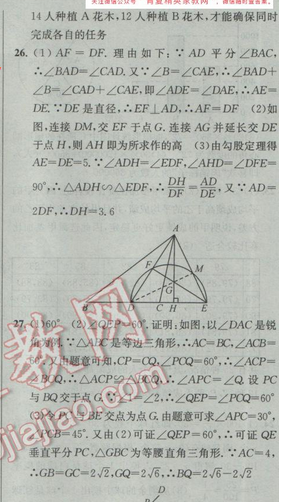 14人种植A花木,12人种植B花木,才能确保同时
完成各自的任务
26. (1)AF=DF. 理由如下:∵AD平分∠BAC,
∴∠BAD=∠CAD. 又∵∠B=∠CAE,∴∠BAD+
∠B=∠CAD+∠CAE,即∠ADE=∠DAE,∴AE=
DE. ∵DE是直径,∴EF⊥AD,∴AF=DF (2)如
图,连接DM,交EF于点G. 连接AG并延长交DE
于点H,则AH即为所求作的高 (3)由勾股定理得
AE=DE=5. ∵∠ADH=∠EDF,∠AHD=∠DFE=
90°,∴△ADH∽△EDF,∴DH/DF=AD/DE,又∵AD=
2DF,∴DH=3.6
A
F
M
G
B D C H E
27. (1)60° (2)∠QEP=60°. 证明:如图,以∠DAC是锐
角为例. ∵△ABC是等边三角形,∴AC=BC,∠ACB=
60°. 又由题意可知,CP=CQ,∠PCQ=60°,∴∠ACP=
∠BCQ,∴△ACP≌△BCQ,∴∠APC=∠Q. 设PC
与BQ交于点G. ∵∠1=∠2,∴∠QEP=∠PCQ=60°
(3)令PC与BE交点为点G. 由题意可求∠APC=30°,
∠PCB=45°. 又由(2)可证∠QEP=60°,∴可证QE
垂直平分PC,△GBC为等腰直角三角形. ∵AC=4,
∴GB=GC=2√2,GQ=2√6,∴BQ=2√6-2√2
D